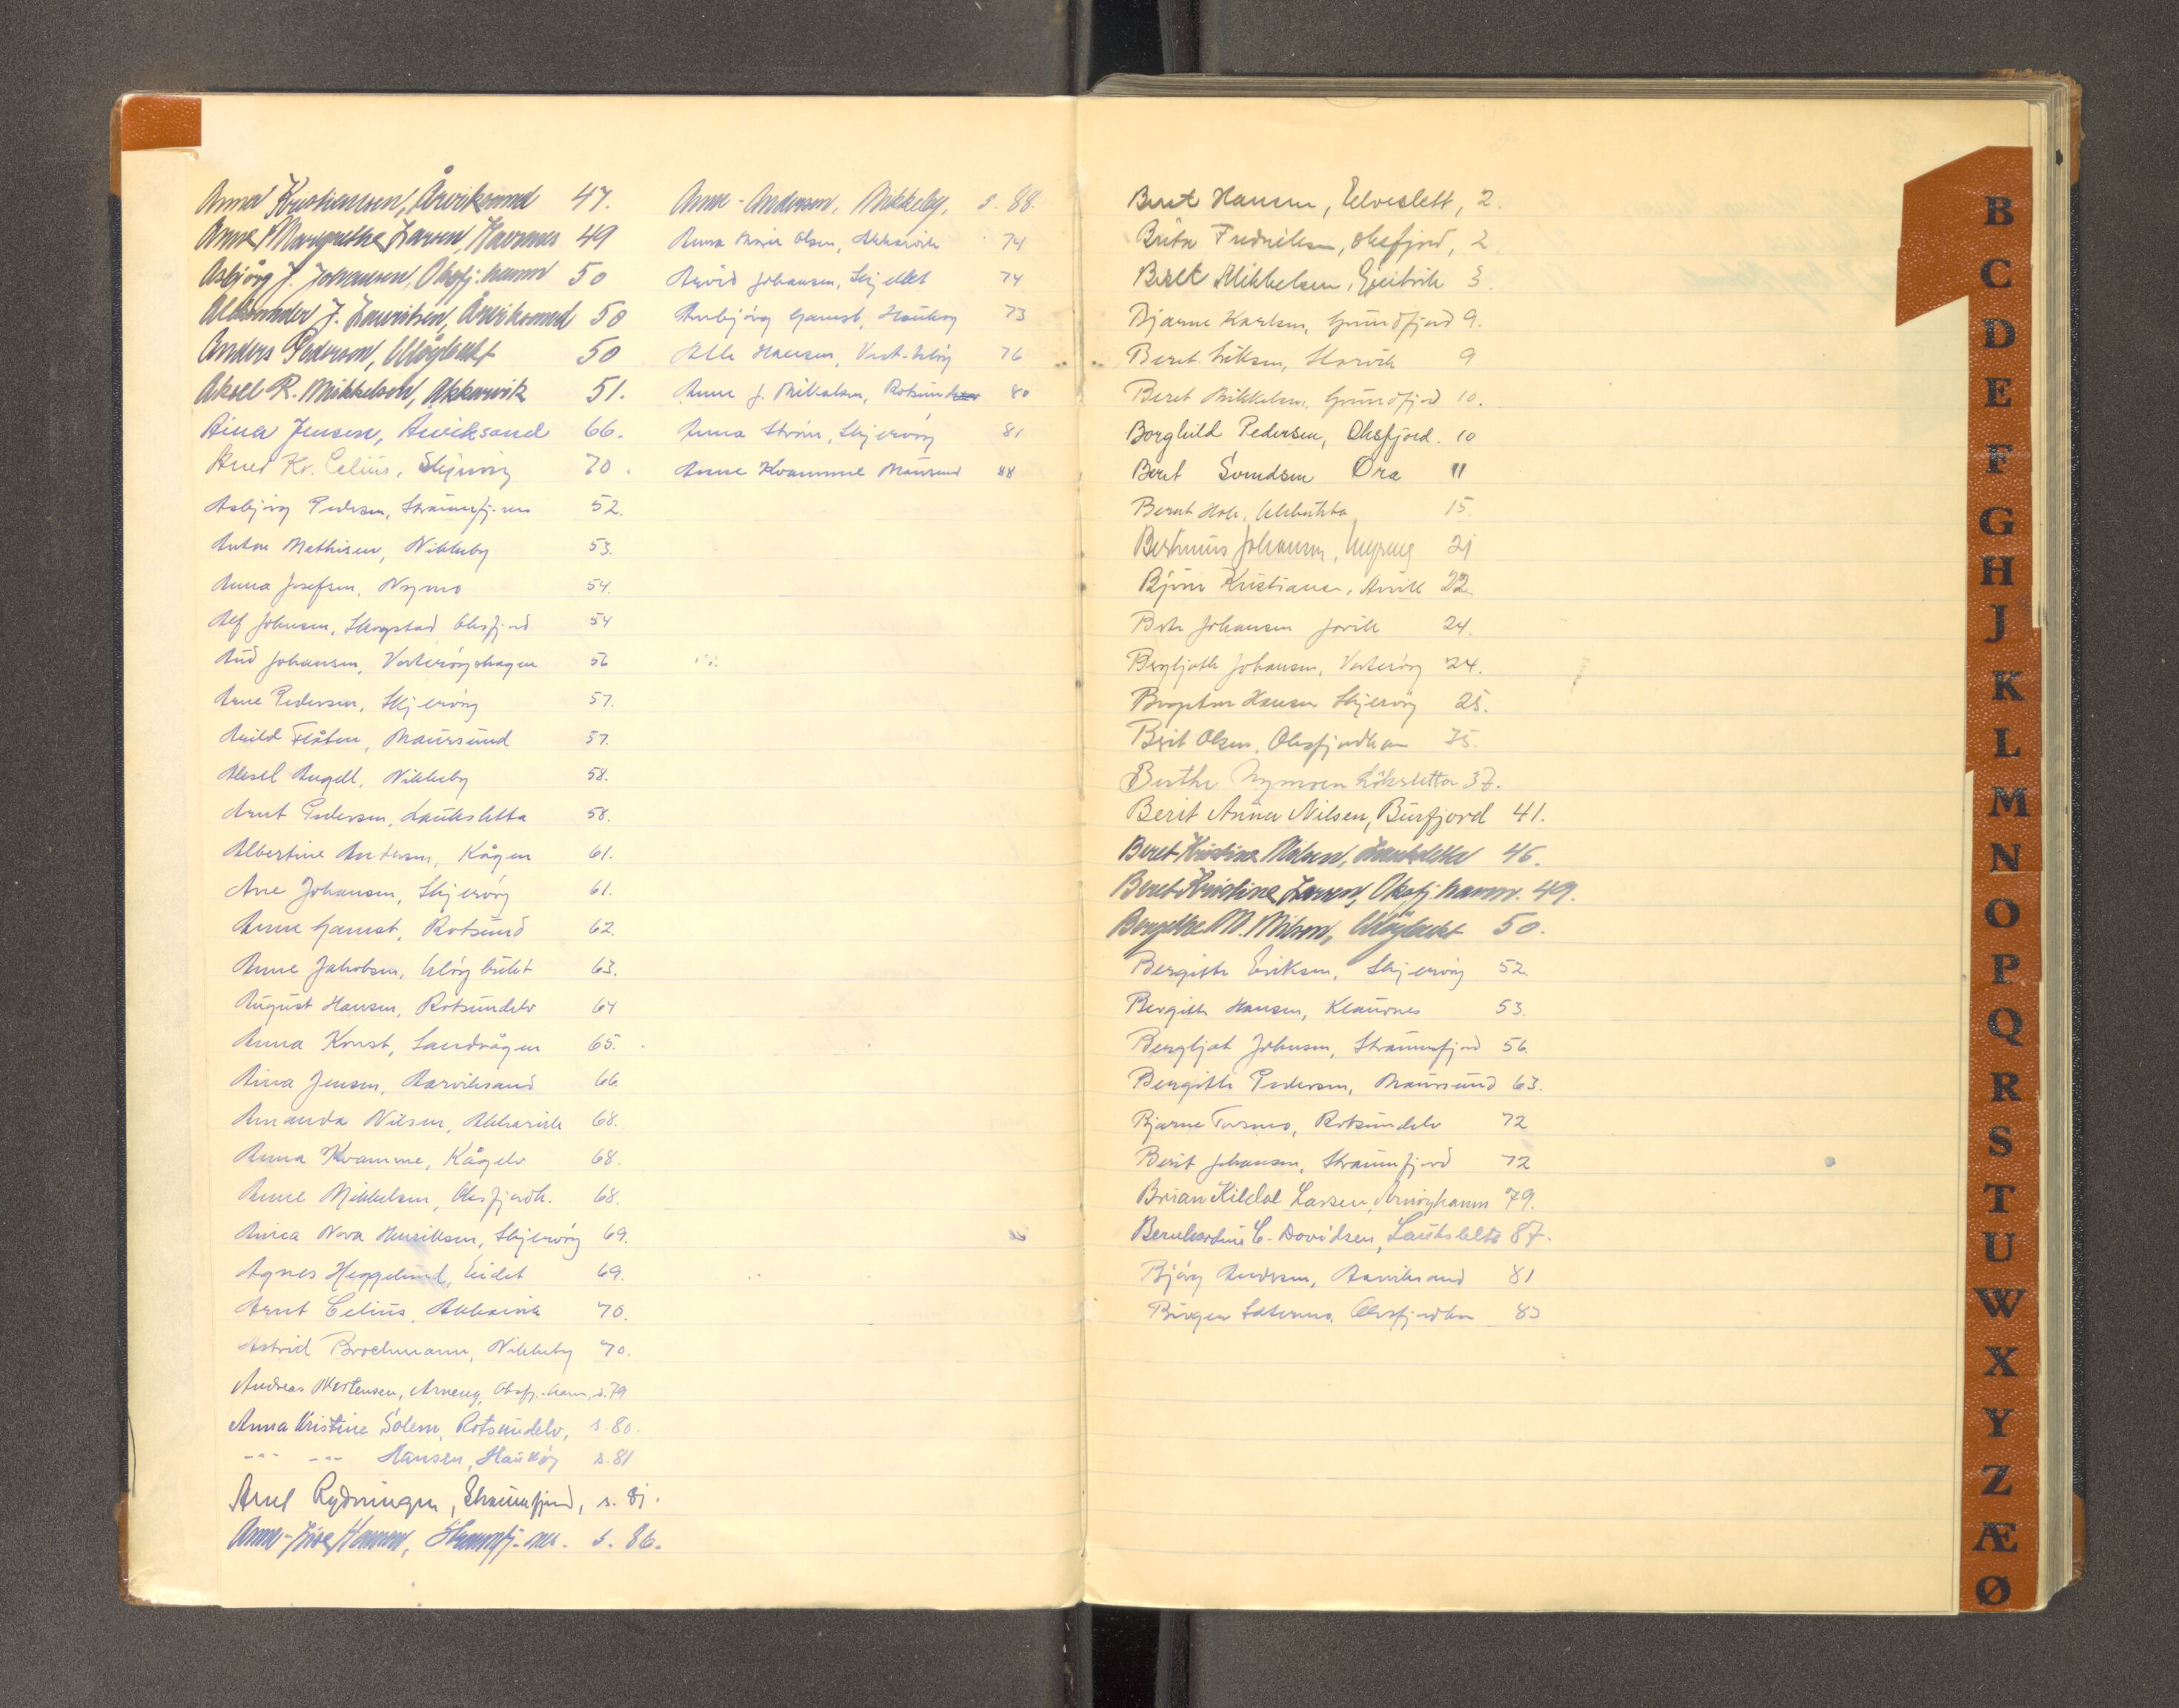 Anna Kristiansen, Årviksand 47.
Anne Margrethe Larsen, Havnnes 49
Asbjörg J. Johansen, Oksfj.hamn 50
Aleksander J. Lauritsen, Årviksand 50
Anders Pedersen, Uløybukt 50
Aksel R. Mikkelsen, Akkarvik 51.
Aina Jensen, Arviksand 66.
Kr. Celius, Skjervöy 70.
Asbjörg Pedersen, Straumfj.nes 52.
Anton Mathisen, Nikkeby 53.
Anna Josefsen, Nymo 54.
Alf Johnsen, Skogstad Oksfjord 54
Aud Johansen, Vorteröyskagen 56
Arne Pedersen, Skjervöy 57.
Arild Flåten, Maursund 57.
Aksel Angell, Nikkeby 58.
Arnt Pedersen, Lauksletta 58.
Albertine Antonsen, Kågen 61.
Are Johansen, Skjervöy 61.
Anne Gamst, Rotsund 62.
Anne Jakobsen, Ulöybukt 63.
August Hansen, Rotsundelv 64
Anna Kornst, Sandvågen 65.
Aina Jensen, Aarviksand 66
Amanda Nilsen, Akkarvik 68.
Anna Kvamme, Kågelv 68.
Anne Mikkelsen, Oksfjordh. 68.
Anna Nora Henriksen, Skjervöy 69.
Agnes Heggelund, Eidet 69.
Arnt Celius, Akkarvik 70.
Astrid Brochmann, Nikkeby 70.
Andreas Mortensen, Arneng, Oksfj.-hamn, s.79
Anna Kristine Solem, Rotsundelv, s.80.
-"- -"- Hansen, Hauköy s.81
Arnt Rydningen, Straumfjord, s. 81.
Anne-Lise Hansen, Straumfj.-nes. s. 86.
Anne-Andersen, Nikkeby, s. 88.
Anna Marie Olsen, Akkarvik 74
Arvid Johansen, Skjervöy 74
Annbjörg Gamst, Hauköy 73
Atle Hansen, Vest-Ulöy 76
Anne J. Mikalsen, Rotsund 80
Anna Ström, Skjervöy 81
Anne Kvamme Maursund 88
Beret Hansen, Elveslett, 2.
Brita Fredriksen, Oksfjord, 2.
Beret Mikkelsen, Geitvik 3.
Bjarne Karlsen, Grundfjord 9.
Beret Eriksen, Storvik 9
Beret Mikkelsen, Grundfjord 10.
Borghild Pedersen, Oksfjord. 10
Beret Svendsen Öra 11
Bernt Hole, 15.
Bertinius Johansen, 21
Björn Kristiansen, Arvik 22.
Johansen Jovik 24.
Bergljoth Johansen, Vorteröy 24.
Hansen Skjervöy 25.
Berit Olsen, Oksfjordhamn 35.
Berthe Nymoen Lökvsletta 37.
Berit Anna Nilsen, Burfjord 41.
Beret Kristine Nilsen, Lauksletta 46.
Beret Kristine Larsen, Oksfj.hamn. 49.
Bergethe M. Nilsen, Uløybukt 50.
Bergith Eriksen, Skjervöy 52.
Bergith Hansen, Klauvnes 53.
Bergljot Johnsen, Straumfjord 56.
Bergith Pedersen, Maursund 63.
Bjarne Torsmo, Rotsundelv 72
Berit Johansen, Straumfjord 72
Brian Kildal Larsen, Arnöyhamn 79.
Bernhardine C. Davidsen, Lauksletta 87.
Björg Andersen, Aarviksand 81
Birger Sætermo, Oksfjordhn 83
B
C
D
E
F
G
H
J
K
L
M
N
O
P
Q
R
S
T
U
W
X
Y
Z
Æ
Ø